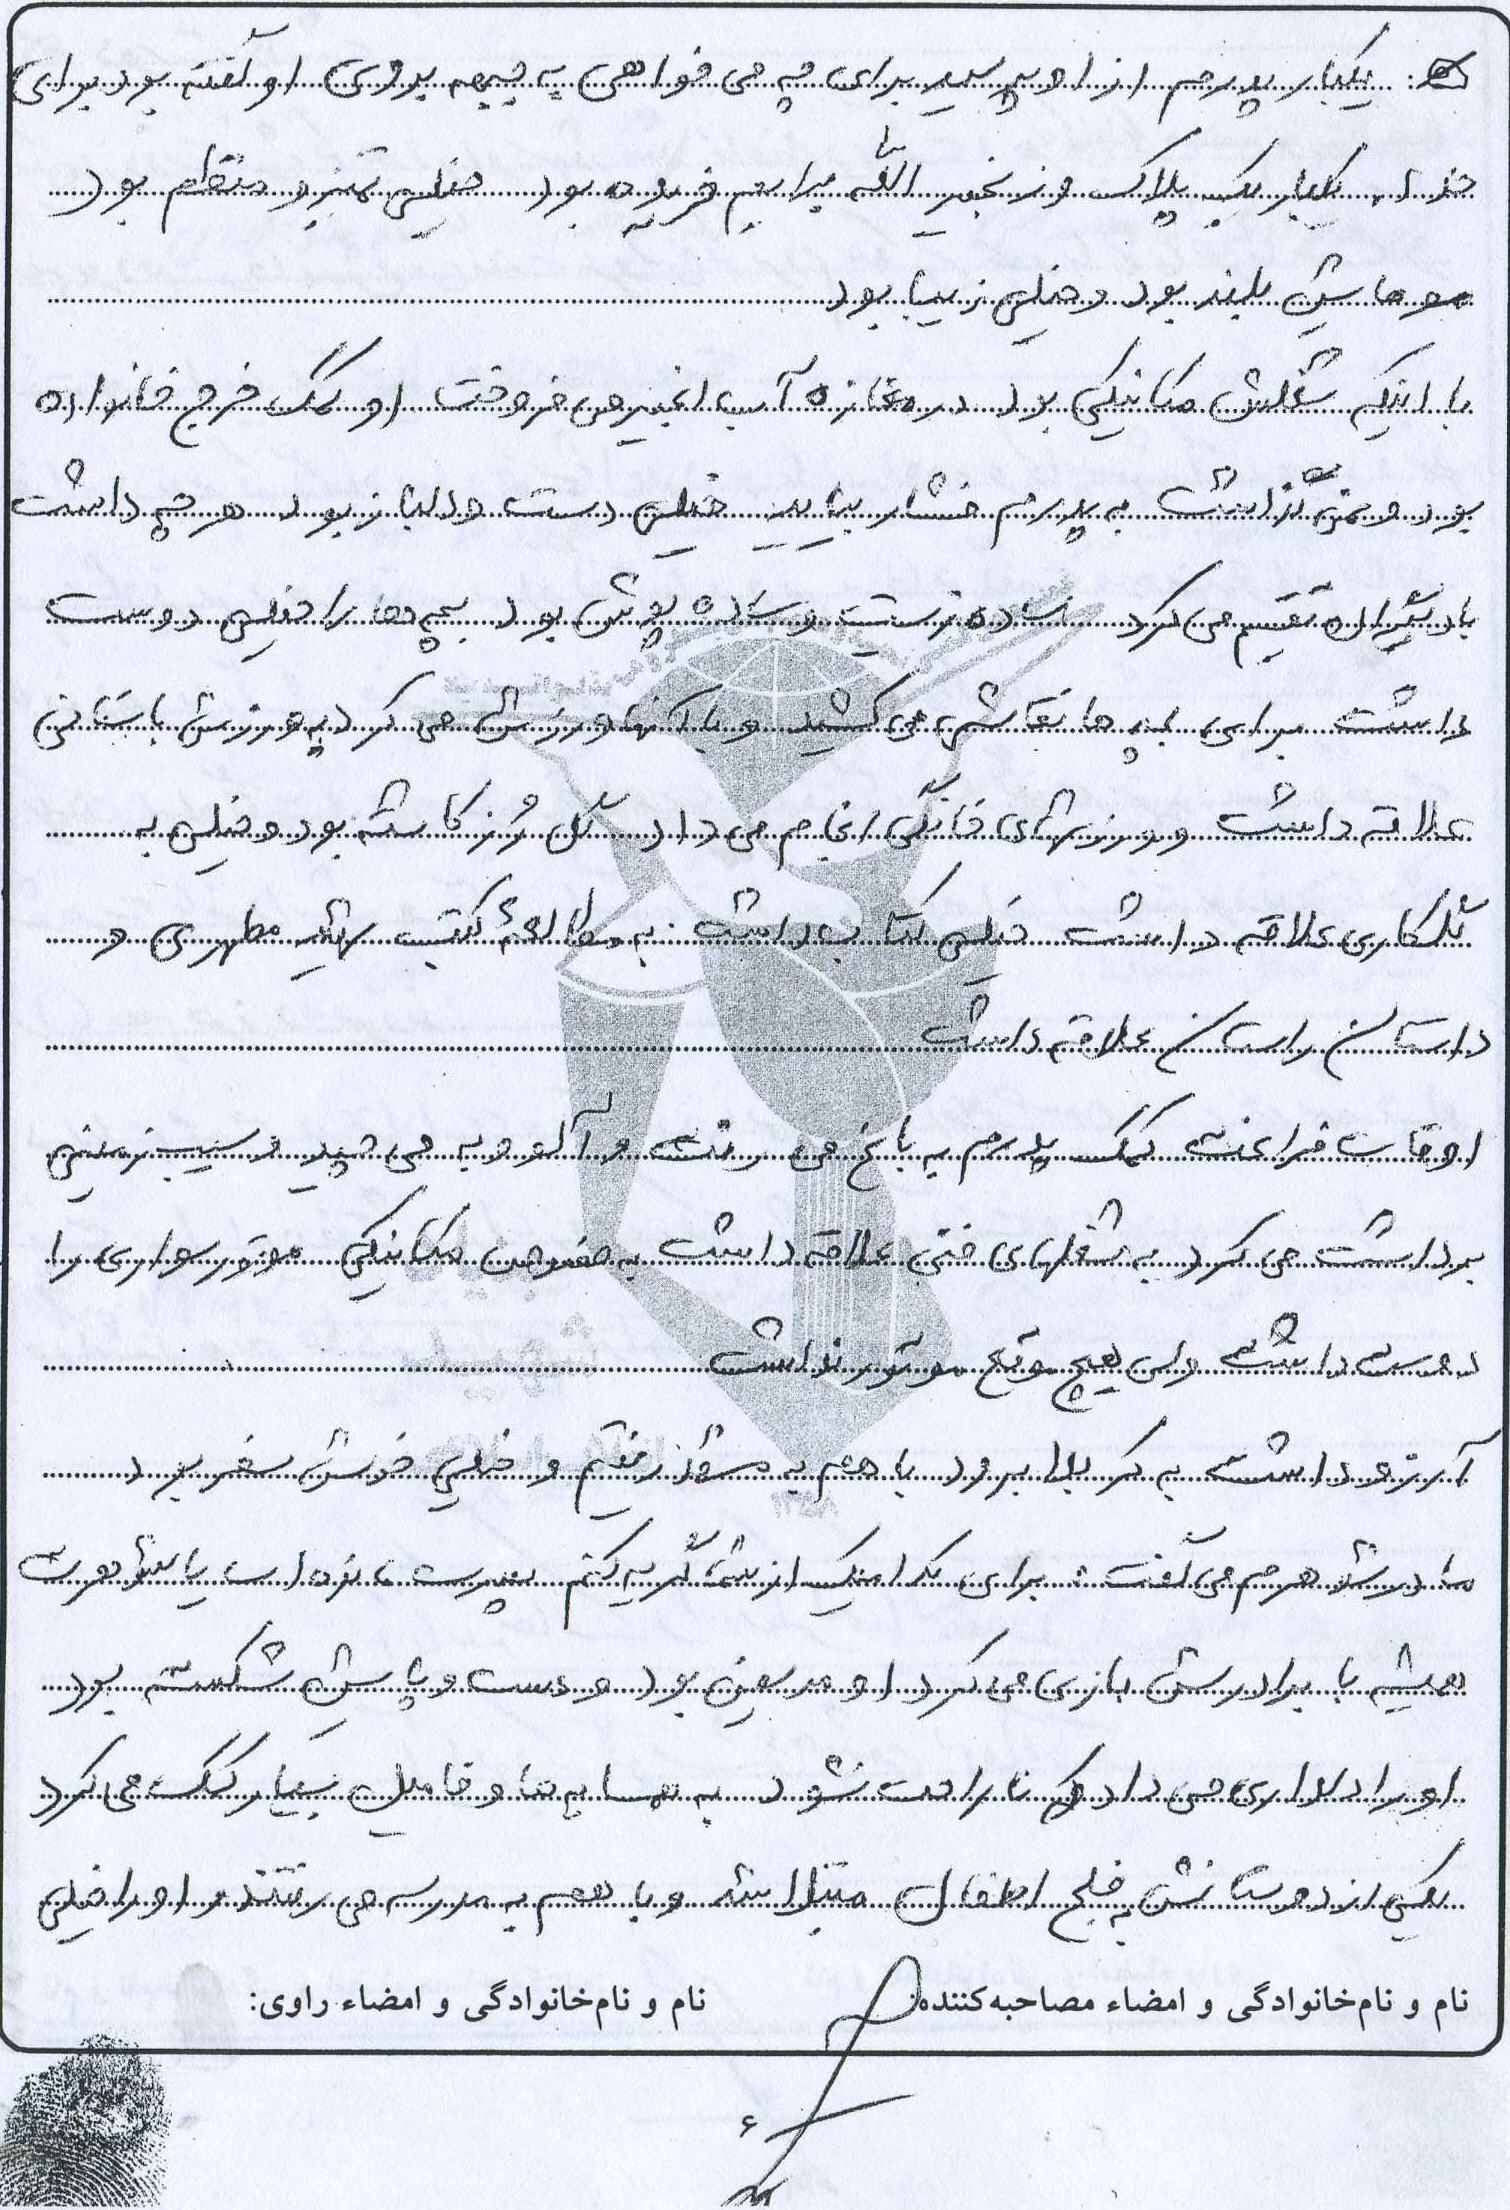 یکبار پدرم از او پرسید برای چه می خواهی به جبهه بروی او گفته بود برای
خدا. یکبار یک پلاک و زنجیر الله برایم خریده بود خیلی تمیز و منظم بود
موهایش بلند بود و خیلی زیبا بود
با اینکه شغلش مکانیکی بود در مغازه آب انجیر می فروخت او کمک خرج خانواده
بود و نمی گذاشت به پدرم فشار بیاید خیلی دست و دلباز بود هر چه داشت
با دیگران تقسیم می کرد ساده زیست و ساده پوش بود بچه ها را خیلی دوست
داشت برای بچه ها نقاشی می کشید و با آنها ورزش می کرد به ورزش باستانی
علاقه داشت و ورزشهای خانگی انجام می داد گل رُز کاشته بود و خیلی به
گلکاری علاقه داشت خیلی کتاب داشت به مطالعهٔ کتب شهید مطهری و
داستان راستان علاقه داشت
اوقات فراغت کمک پدرم به باغ می رفت و آلو و به می چید و سیب زمینی
برداشت می کرد به شغلهای فنی علاقه داشت به خصوص مکانیکی موتور سواری را
دوست داشت ولی هیچ موقع موتور نداشت
آرزو داشت به کربلا برود با هم به مشهد رفتیم و خیلی خوش سفر بود
مادر شوهرم می گفت : برای بار اینکه از شما گریه کنم پسرت نمرده است یا شوهرت
همیشه با برادرش بازی می کرد او مریض بود و دست و پایش شکسته بود
او را دلداری می داد که ناراحت نشود به همسایه ها و فامیل بسیار کمک می کرد
یکی از دوستانش به فلج اطفال مبتلا شد و با هم به مدرسه می رفتند و او را خیلی
نام و نام‌خانوادگی و امضاء مصاحبه‌کننده: نام و نام‌خانوادگی و امضاء راوی:
۶